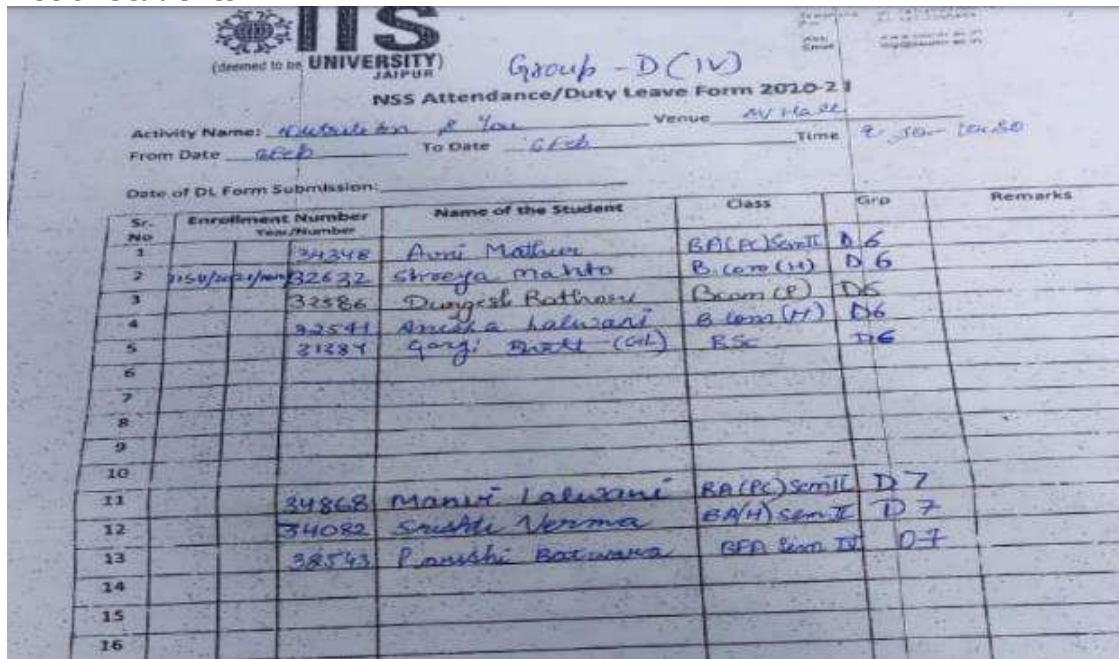 IIS
(deemed to be UNIVERSITY)
JAIPUR
Group - D (IV)
NSS Attendance/Duty Leave Form 2020-21
Activity Name: & You Venue AV Hall
From Date 6Feb To Date 6Feb Time 9:30- 10:30
Date of DL Form Submission:
Sr. No Enrollment Number Year/Number Name of the Student Class Grp Remarks
1 34348 Avni Mathur BA(PC)Sem II D 6
2 32632 Shreeya Mahto B.Com (H) D 6
3 32586 Durgesh Rathore Bcom (P) D6
4 32541 Anisha Lalwani B Com (H) D6
5 31384 Gargi Bhatt (GIL) BSc D6
6
7
8
9
10
11 34868 Manvi Lalwani BA(PC) Sem II D 7
12 34082 Srishti Verma BA(H) Sem II D 7
13 38543 BFA Sem IV D-7
14
15
16